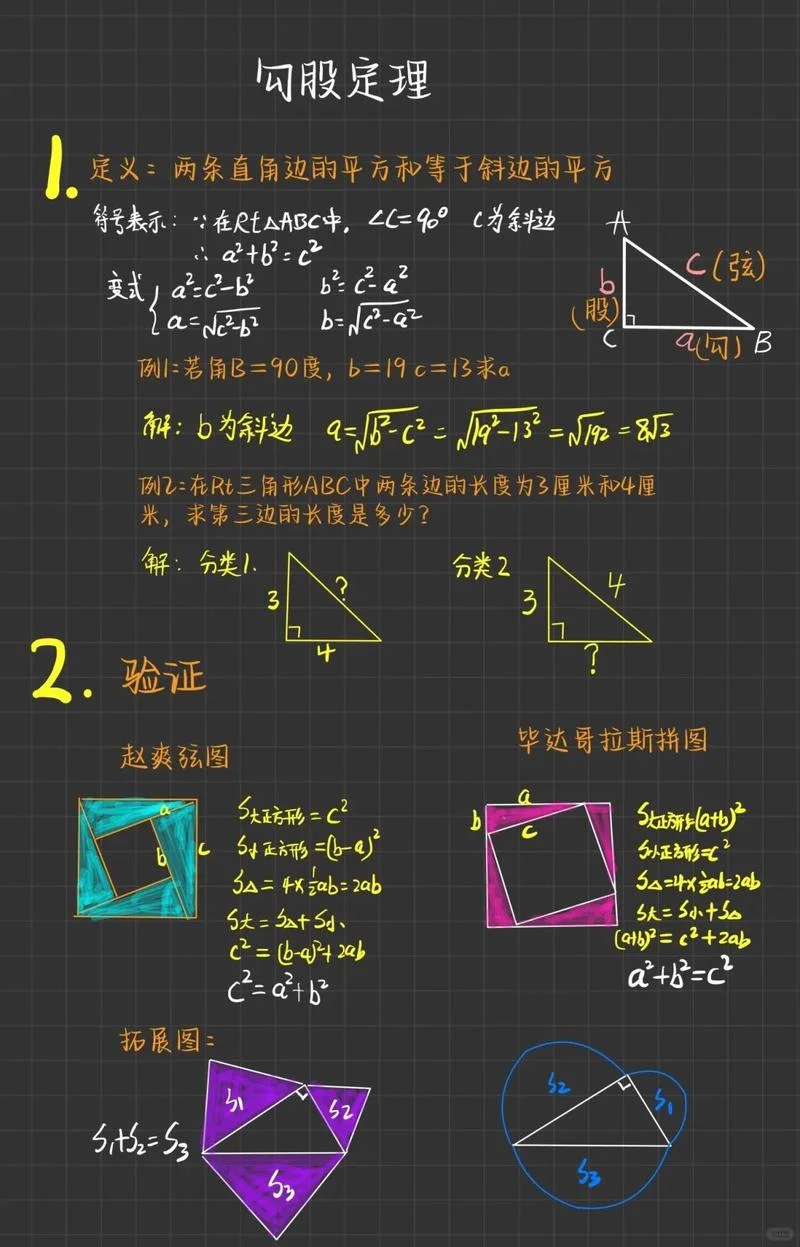 勾股定理
1. 定义: 两条直角边的平方和等于斜边的平方
符号表示: ∵在Rt△ABC中, ∠C=90° C为斜边
∴ a²+b²=c²
变式 { a²=c²-b² b²=c²-a²
a=√c²-b² b=√c²-a²
A
b
(股)
C
c(弦)
a(勾)
B
例1:若角B=90度, b=19 c=13求a
解: b为斜边 a=√b²-c² = √19²-13² = √192 = 8√3
例2:在Rt三角形ABC中两条边的长度为3厘米和4厘
米, 求第三边的长度是多少?
解: 分类1.
3
?
4
分类2
3
4
?
2. 验证
赵爽弦图
a
b
c
S大正方形=c²
S小正方形=(b-a)²
S△=4×½ab=2ab
S大=S△+S小
c²=(b-a)²+2ab
c²=a²+b²
毕达哥拉斯拼图
a
b
c
S大正方形(a+b)²
S小正方形=c²
S△=4×½ab=2ab
S大=S小+S△
(a+b)²=c²+2ab
a²+b²=c²
拓展图:
S₁+S₂=S₃
S₁
S₂
S₃
S₂
S₁
S₃